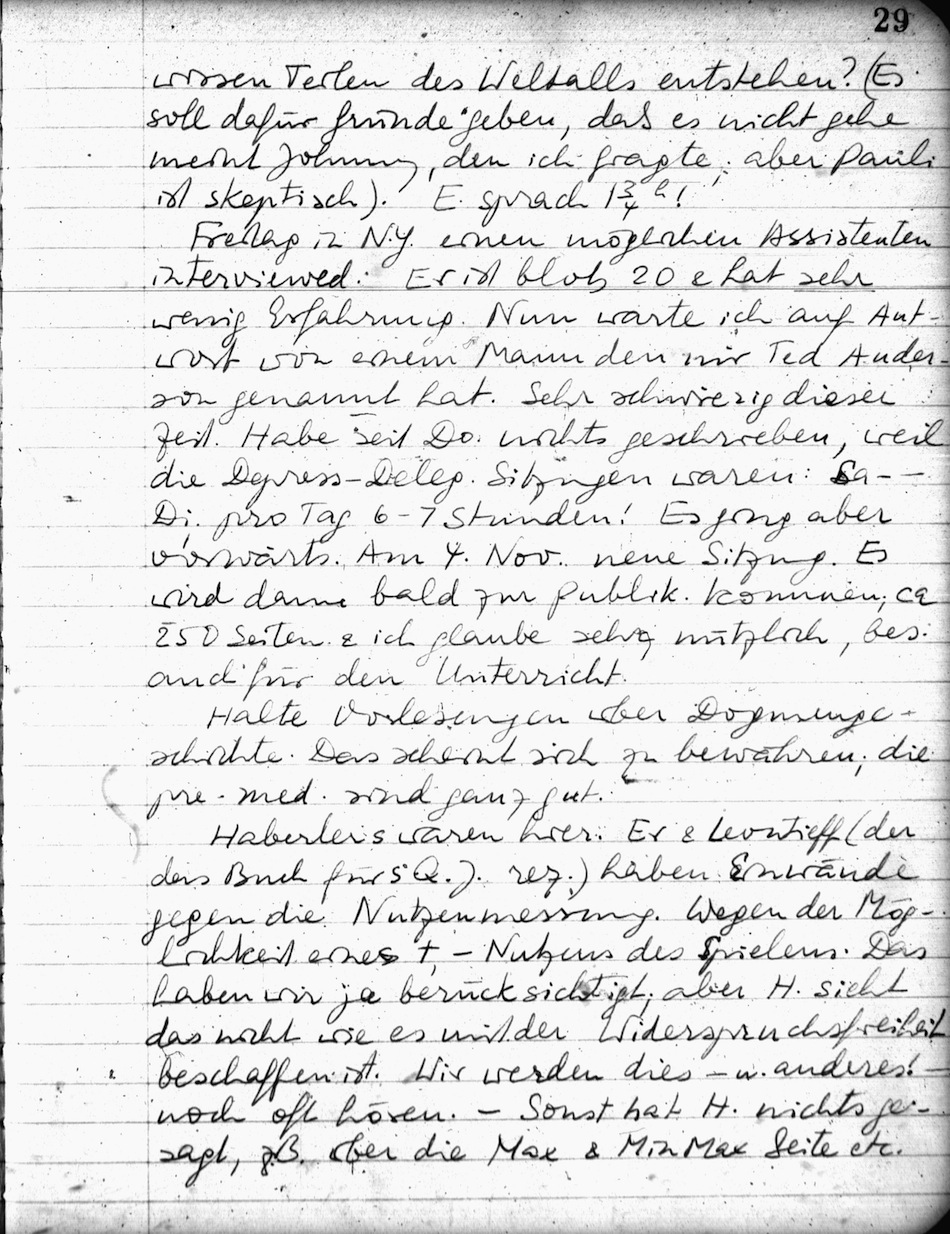 29
wissen Teilen des Weltalls entstehen? (Es
soll dafür Gründe geben, daß es nicht gehe
meint Johnny, den ich fragte; aber Pauli
ist skeptisch). E. sprach 1 3/4 h!
Freitag in N.Y. einen möglichen Assistenten
interviewed. Er ist bloß 20 & hat sehr
wenig Erfahrung. Nun warte ich auf Ant-
wort von einem Mann den mir Ted Ander-
son genannt hat. Sehr schwierig dieser
Zeit. Habe seit Do. nichts geschrieben, weil
die Depress-Deleg. Sitzungen waren: Sa-
Di. pro Tag 6-7 Stunden! Es ging aber
vorwärts. Am 4. Nov. neue Sitzung. Es
wird dann bald zur Publik. kommen; ca
250 Seiten & ich glaube sehr nützlich, bes.
auch für den Unterricht.
Halte Vorlesungen über Dogmenge-
schichte. Das scheint sich zu bewähren; die
pre-med. sind ganz gut.
Haberlers waren hier. Er & Leontieff (der
das Buch für's Q.J. rez.) haben Einwände
gegen die Nutzenmessung. Wegen der Mög-
lichkeit eines +, - Nutzens des Spielens. Das
haben wir ja berücksichtigt; aber H. sieht
das nicht wie es mit der Widerspruchsfreiheit
beschaffen ist. Wir werden dies - u. anderes! -
noch oft hören. - Sonst hat H. nichts ge-
sagt, zB. über die Max & MinMax Seite etc.